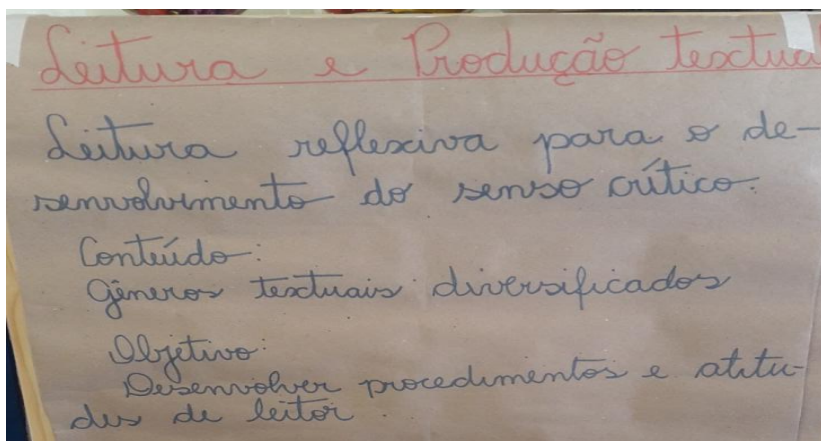 Leitura e Produção textual
Leitura reflexiva para o de-
senvolvimento do senso crítico.
Conteúdo:
Gêneros textuais diversificados
Objetivo:
Desenvolver procedimentos e atitu-
des de leitor.